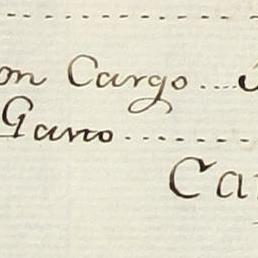 on Cargo....
Gano........
Ca